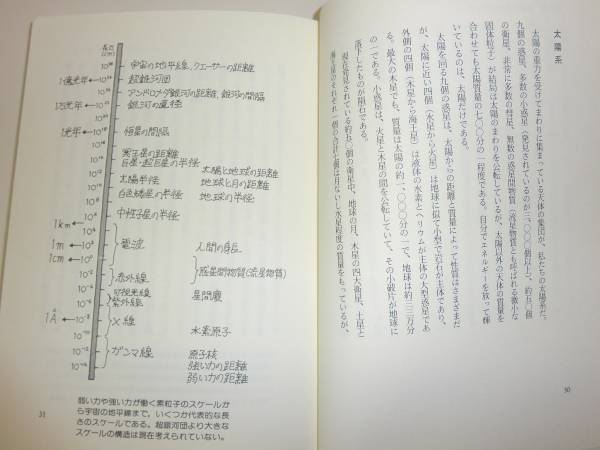 太陽系
太陽の重力を受けてまわりに集まっている天体の集団が、私たちの太陽系だ。
九個の惑星、多数の小惑星(発見されているのが三、〇〇〇個以上)、約五〇個
の衛星、非常に多数の彗星、無数の惑星間物質(流星物質とも呼ばれる微小な
固体粒子)が結局は太陽のまわりを公転しているが、太陽以外の天体の質量を
合わせても太陽質量の七〇〇分の一程度である。自分でエネルギーを放って輝
いているのは、太陽だけである。
太陽を回る九個の惑星は、太陽からの距離と質量によって性質はさまざまだ
が、太陽に近い四個(水星から火星)は地球に似て小型で岩石が主体であり、
外側の四個(木星から海王星)は液体の水素とヘリウムが主体の大型惑星であ
る。最大の木星でも、質量は太陽の約一、〇〇〇分の一で、地球は約三三万分
の一である。小惑星は、火星と木星の間を公転していて、その小破片が地球に
落下したものが隕石である。
現在発見されている約五〇個の衛星中、地球の月、木星の四大衛星、土星と
海王星のそれぞれ一個の合計七個は月ないし水星程度の質量をもっているが、
30
宇宙の地平線、クエーサーの距離
1億光年 超銀河団
アンドロメダ銀河の距離、銀河の間隔
1万光年 銀河の直径
1光年 恒星の間隔
冥王星の距離
巨星・超巨星の半径
太陽と地球の距離
太陽半径 地球と月の距離
白色矮星の半径 地球の半径
中性子星の半径
1km
1m 電波 人間の身長
1cm
惑星間物質(流星物質)
赤外線
可視光線
紫外線 星間塵
1Å X線
水素原子
ガンマ線 原子核
強い力の距離
弱い力の距離
弱い力や強い力が働く素粒子のスケールか
ら宇宙の地平線まで,いくつか代表的な長
さのスケールである。超銀河団より大きな
スケールの構造は現在考えられていない。
31